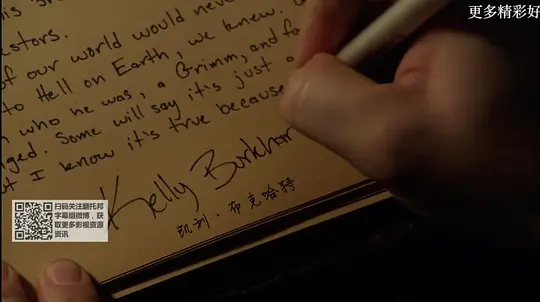 更多精彩好
estors.
of our world would never
to Hell on Earth, we knew.
who he was, a Grimm, and fa
nged. Some will say it's just a
I know it's true because
Kelly Burkhar
凯利·布克哈特
扫码关注翻托邦
字幕组微博，获
取更多影视资源
资讯